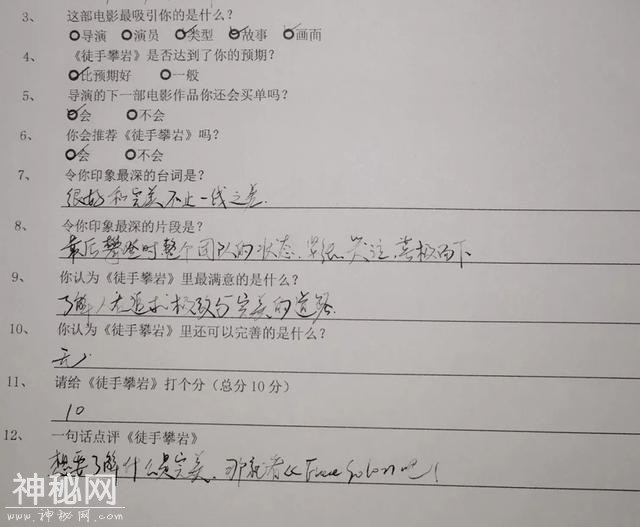 3、 这部电影最吸引你的是什么？
○导演 ○演员 ○类型 ○故事 ○画面
4、 《徒手攀岩》是否达到了你的预期？
○比预期好 ○一般
5、 导演的下一部电影作品你还会买单吗？
○会 ○不会
6、 你会推荐《徒手攀岩》吗？
○会 ○不会
7、 令你印象最深的台词是？
很好和完美不止一线之差.
8、 令你印象最深的片段是？
最后攀登时整个团队的状态，紧张、关注、
9、 你认为《徒手攀岩》里最满意的是什么？
了解人在追求极致与完美的道路.
10、 你认为《徒手攀岩》里还可以完善的是什么？
无.
11、 请给《徒手攀岩》打个分（总分 10 分）
10
12、 一句话点评《徒手攀岩》
想要了解什么是完美，那就看 Free Solo 吧！
神秘网
www.神秘网.com